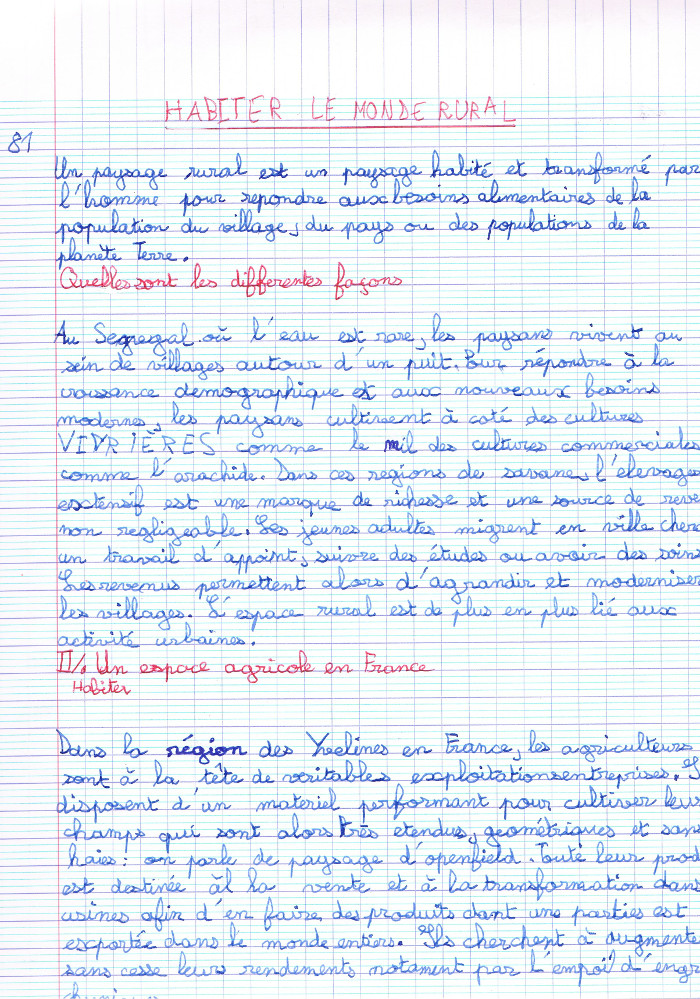 HABITER LE MONDE RURAL
81
Un paysage rural est un paysage habité et transformé par
l'homme pour repondre aux besoins alimentaires de la
population du village, du pays ou des populations de la
planète Terre.
Quelles sont les differentes façons
Au Segregal où l'eau est rare, les paysans vivent au
sein de villages autour d'un puit. Pour répondre à la
croissance démographique et aux nouveaux besoins
modernes, les paysans cultivent à coté des cultures
VIVRIÈRES comme le mil des cultures commerciales
comme l'arachide. Dans ces regions de savane, l'élevage
exctensif est une marque de richesse et une source de reve
non negligeable. Les jeunes adultes migrent en ville cherc
un travail d'appoint, suivre des études ou avoir des soins
Les revenus permettent alors d'agrandir et moderniser
les villages. L'espace rural est de plus en plus lié aux
activité urbaines.
II/. Un espace agricole en France
Habiter
Dans la région des Yvelines en France, les agriculteurs
sont à la tête de veritables exploitations entreprises. I
disposent d'un materiel performant pour cultiver leur
champs qui sont alors très etendus, geométriques et sans
haies : on parle de paysage d'openfield. Toute leur prod
est destinée à la vente et à la transformation dans
usines afin d'en faire des produits dont une parties est
exportée dans le monde entiers. Ils cherchent à augmente
sans cesse leurs rendements notament par l'empoi d'engr